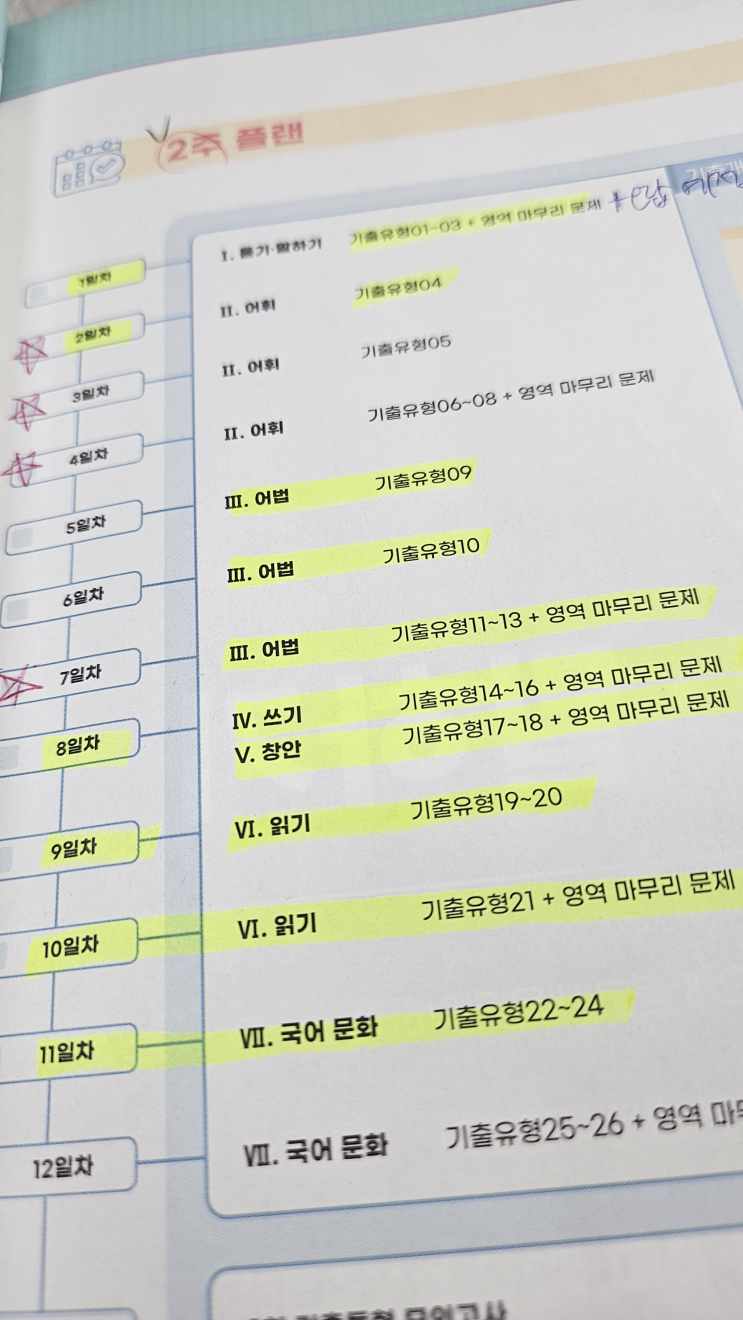 2주 플랜
1일차 I. 듣기·말하기 기출유형01~03 + 영역 마무리 문제 +
2일차 II. 어휘 기출유형04
3일차 II. 어휘 기출유형05
4일차 II. 어휘 기출유형06~08 + 영역 마무리 문제
5일차 III. 어법 기출유형09
6일차 III. 어법 기출유형10
7일차 III. 어법 기출유형11~13 + 영역 마무리 문제
8일차 IV. 쓰기 기출유형14~16 + 영역 마무리 문제
V. 창안 기출유형17~18 + 영역 마무리 문제
9일차 VI. 읽기 기출유형19~20
10일차 VI. 읽기 기출유형21 + 영역 마무리 문제
11일차 VII. 국어 문화 기출유형22~24
12일차 VII. 국어 문화 기출유형25~26 + 영역